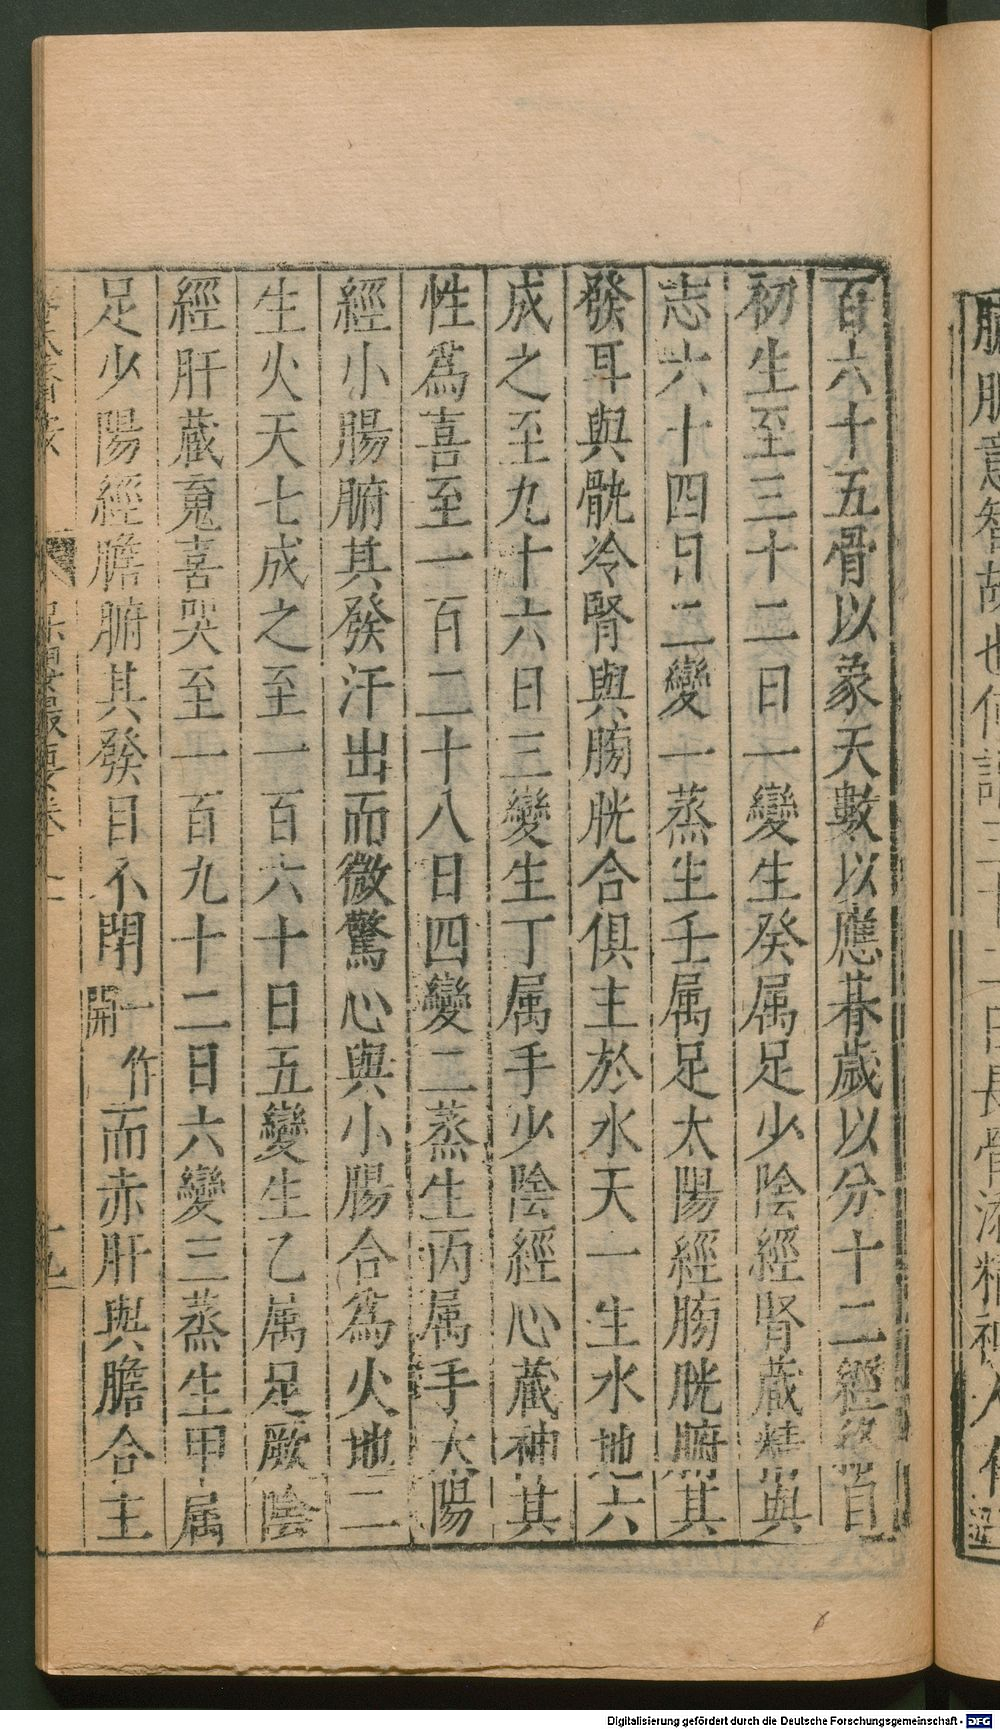 百六十五骨以象天數以應朞歲以分十二經絡自
初生至三十二日一變生癸属足少陰經腎藏精與
志六十四日二變一蒸生壬属足太陽經膀胱腑其
發耳與骩冷腎與膀胱合俱主於水天一生水地六
成之至九十六日三變生丁属手少陰經心藏神其
性爲喜至一百二十八日四變二蒸生丙属手太陽
經小腸腑其發汗出而微驚心與小腸合爲火地二
生火天七成之至一百六十日五變生乙属足厥陰
經肝藏䰟喜哭至一百九十二日六變三蒸生甲属
足少陽經膽腑其發目不閉一作開而赤肝與膽合主
保嬰撮要卷
Digitalisierung gefördert durch die Deutsche Forschungsgemeinschaft - DFG